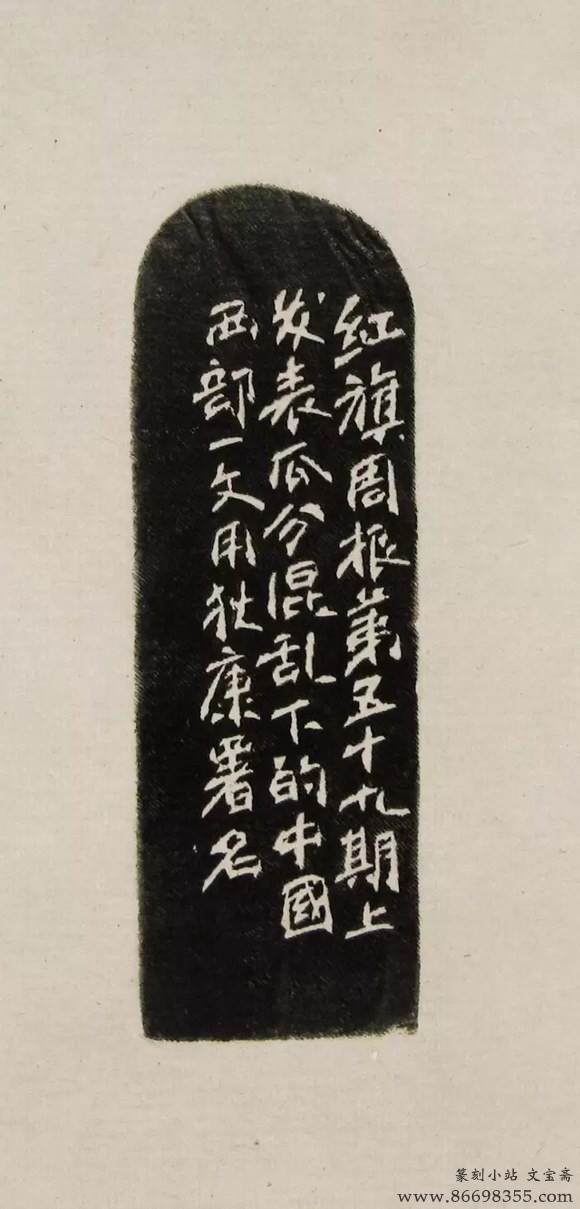 红旗周报第五十九期上
发表瓜分混乱下的中國
西部一文用狄康署名
篆刻小站 文宝斋
www.86698355.com